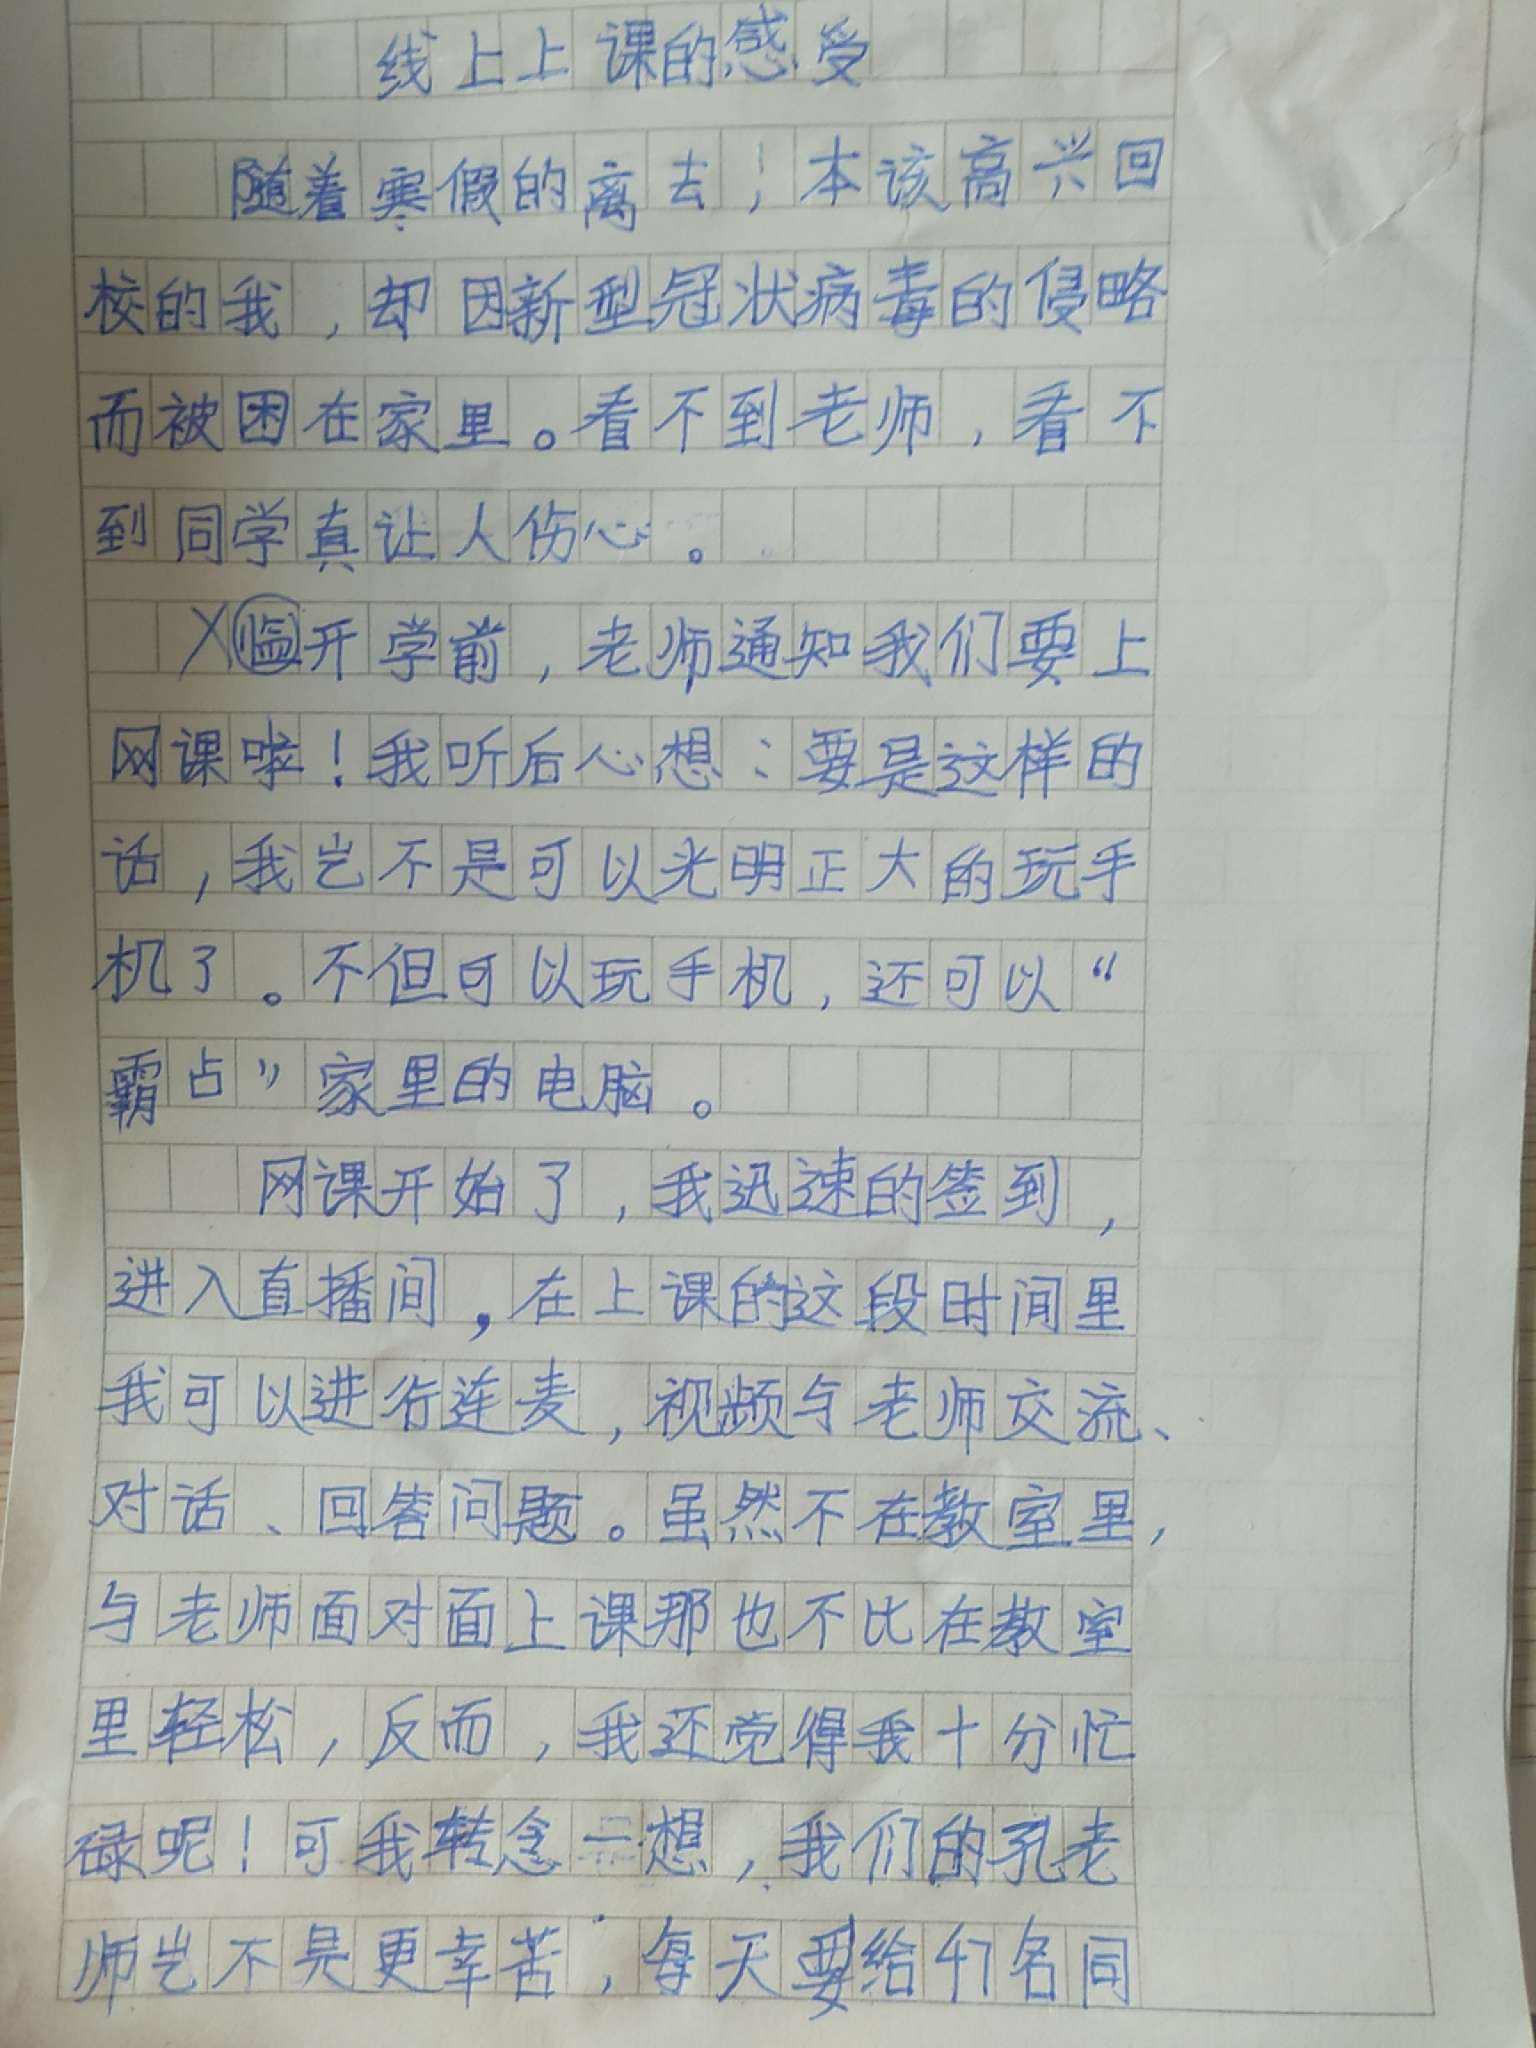 线上上课的感受
随着寒假的离去，本该高兴回
校的我，却因新型冠状病毒的侵略
而被困在家里。看不到老师，看不
到同学真让人伤心。
临开学前，老师通知我们要上
网课啦！我听后心想：要是这样的
话，我岂不是可以光明正大的玩手
机了。不但可以玩手机，还可以“
霸占”家里的电脑。
网课开始了，我迅速的签到，
进入直播间，在上课的这段时间里
我可以进行连麦，视频与老师交流、
对话、回答问题。虽然不在教室里，
与老师面对面上课那也不比在教室
里轻松，反而，我还觉得我十分忙
碌呢！可我转念一想，我们的孔老
师岂不是更幸苦，每天要给47名同